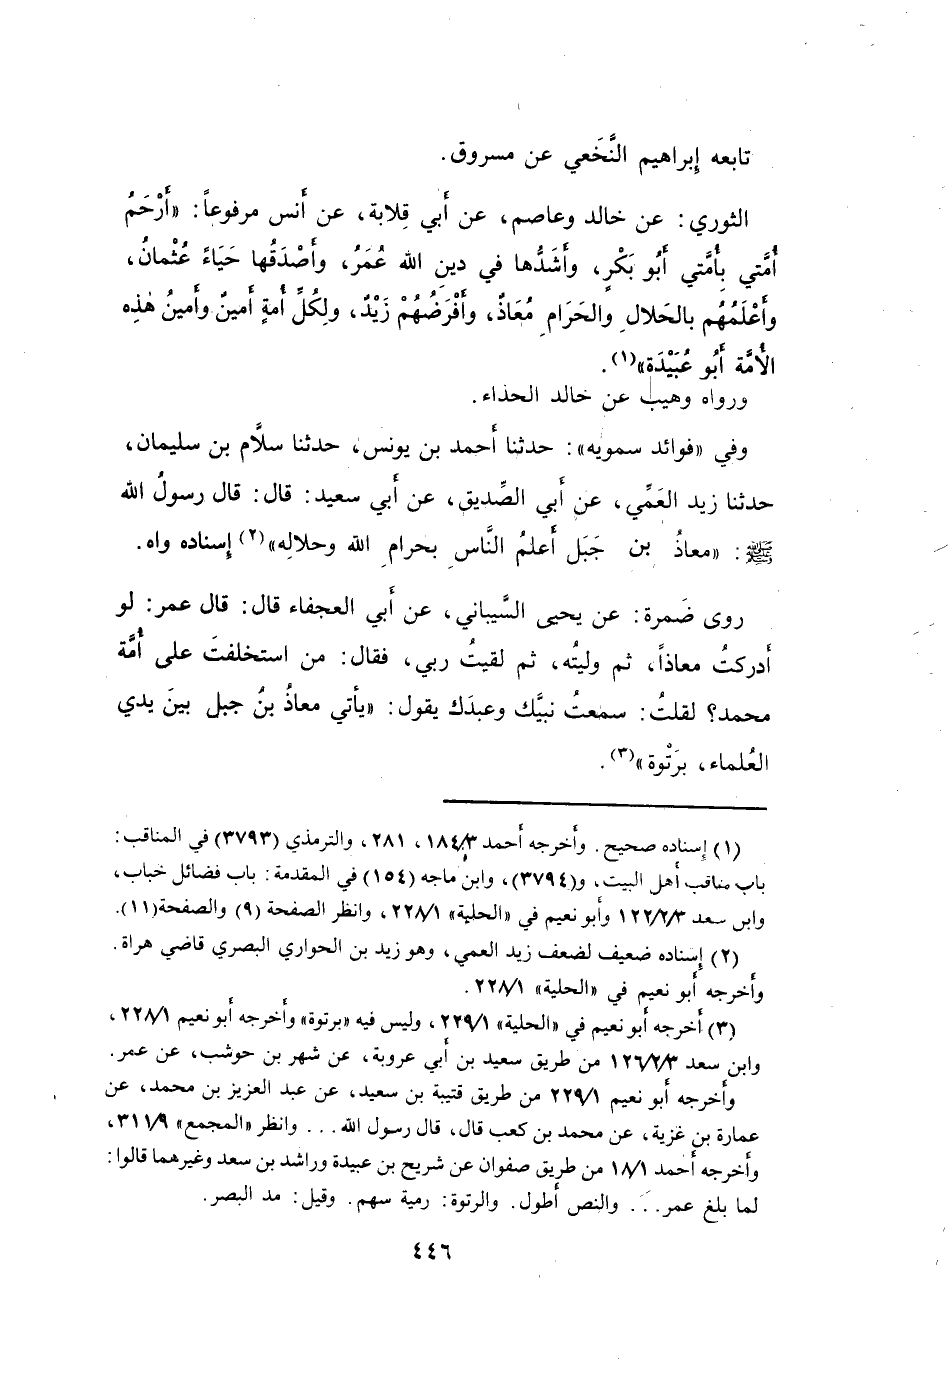 تابعه إبراهيم النَّخَعي عن مسروق.
الثوري: عن خالد وعاصم، عن أَبي قِلابة، عن أَنس مرفوعاً: «أَرْحَمُ
أُمَّتي بِأُمَّتي أَبُو بَكْرٍ، وأَشَدُّها في دينِ الله عُمَرُ، وأَصْدَقُها حَيَاءً عُثْمانُ،
وأَعْلَمُهُم بالحَلال والحَرَام مُعَاذٌ، وأَفْرَضُهُمْ زَيْدٌ، ولِكُلِّ أُمةٍ أَمينٌ وأَمينُ هٰذِه
الأُمَّة أَبُو عُبَيْدَة»(١).
ورواه وهيب عن خالد الحذاء.
وفي «فوائد سمويه»: حدثنا أَحمد بن يونس، حدثنا سلاَّم بن سليمان،
حدثنا زيد العَمِّي، عن أَبي الصِّديق، عن أَبي سعيد: قال: قال رسولُ الله
ﷺ: «معاذُ بن جَبَل أَعلمُ النَّاسِ بحرامِ الله وحلالِه»(٢) إسناده واه.
روى ضَمرة: عن يحيى السَّيباني، عن أَبي العجفاء قال: قال عمر: لو
أَدركتُ معاذاً، ثم وليتُه، ثم لقيتُ ربي، فقال: من استخلفتَ على أُمَّة
محمد؟ لقلتُ: سمعتُ نبيَّك وعبدَك يقول: «يأتي معاذُ بنُ جبل بينَ يدي
العُلماء، برَتْوة»(٣).
(١) إسناده صحيح. وأَخرجه أَحمد ١٨٤/٣، ٢٨١، والترمذي (٣٧٩٣) في المناقب:
باب مناقب أَهل البيت، و(٣٧٩٤)، وابن ماجه (١٥٤) في المقدمة: باب فضائل خباب،
وابن سعد ١٢٢/٢/٣ وأَبو نعيم في «الحلية» ٢٢٨/١، وانظر الصفحة (٩) والصفحة(١١).
(٢) إسناده ضعيف لضعف زيد العمي، وهو زيد بن الحواري البصري قاضي هراة.
وأَخرجه أَبو نعيم في «الحلية» ٢٢٨/١.
(٣) أَخرجه أَبو نعيم في «الحلية» ٢٢٩/١، وليس فيه «برتوة» وأَخرجه أَبو نعيم ٢٢٨/١،
وابن سعد ١٢٦/٢/٣ من طريق سعيد بن أَبي عروبة، عن شهر بن حوشب، عن عمر.
وأَخرجه أَبو نعيم ٢٢٩/١ من طريق قتيبة بن سعيد، عن عبد العزيز بن محمد، عن
عمارة بن غزية، عن محمد بن كعب قال، قال رسول الله... وانظر «المجمع» ٣١١/٩،
وأَخرجه أَحمد ١٨/١ من طريق صفوان عن شريح بن عبيدة وراشد بن سعد وغيرهما قالوا:
لما بلغ عمر... والنص أَطول. والرتوة: رمية سهم. وقيل: مد البصر.
٤٤٦